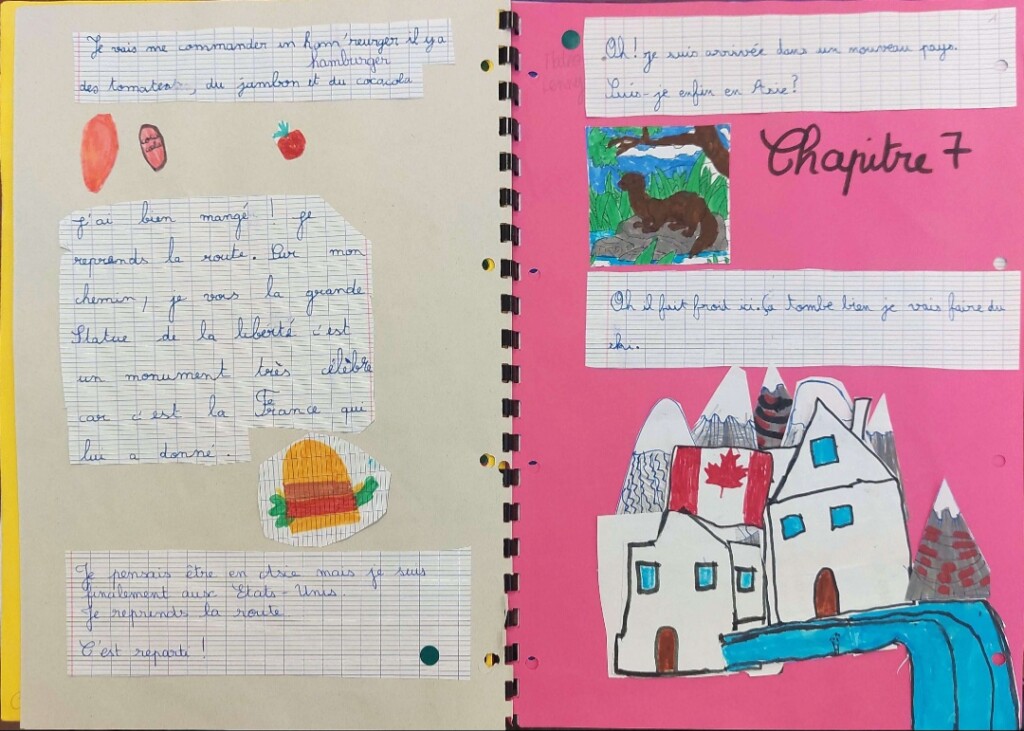 Je vais me commander un hom'reurger il y a
hamburger
des tomates, du jambon et du cocacola
coca
cola
J'ai bien mangé ! Je
reprends la route. Sur mon
chemin, je vois la grande
Statue de la liberté c'est
un monument très célèbre
car c'est la France qui
lui a donné.
Je pensais être en Asie mais je suis
finalement aux Etats-Unis.
Je reprends la route
C'est reparti !
Oh ! je suis arrivée dans un nouveau pays.
Suis-je enfin en Asie ?
Chapitre 7
Oh il fait froit ici. Ça tombe bien je vais faire du
ski.